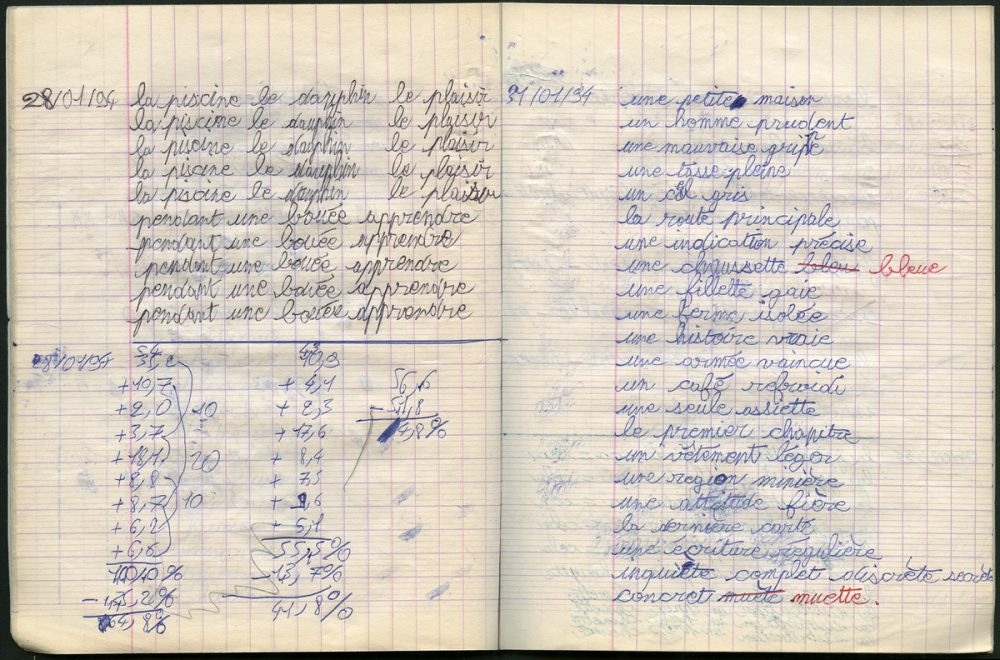 28/01/94 la piscine le dauphin le plaisir
la piscine le dauphin le plaisir
la piscine le dauphin le plaisir
la piscine le dauphin le plaisir
la piscine le dauphin le plaisir
pendant une bouée apprendre
pendant une bouée apprendre
pendant une bouée apprendre
pendant une bouée apprendre
pendant une bouée apprendre
28/01/94
+10,7
+2,0 10
+3,7
+18,1 20
+8,8
+8,7 10
+6,2
+6,6
+ 4,1
+ 2,3
+ 17,6
+ 8,4
+ 7,5
+ 5,1
55,5%
-13,7%
41,8%
56,6
- 51,8
4,8%
31/01/94 une petite maison
un homme prudent
une mauvaise grippe
une tasse pleine
un œil gris
la route principale
une indication précise
une chaussette bleu bleue
une fillette gaie
une ferme isolée
une histoire vraie
une armée vaincue
un café refroidi
une seule assiette
le premier chapitre
un vêtement léger
une region minière
une attitude fière
la dernière carte
une écriture régulière
inquiète complet discrète secrète
concret muète muette.